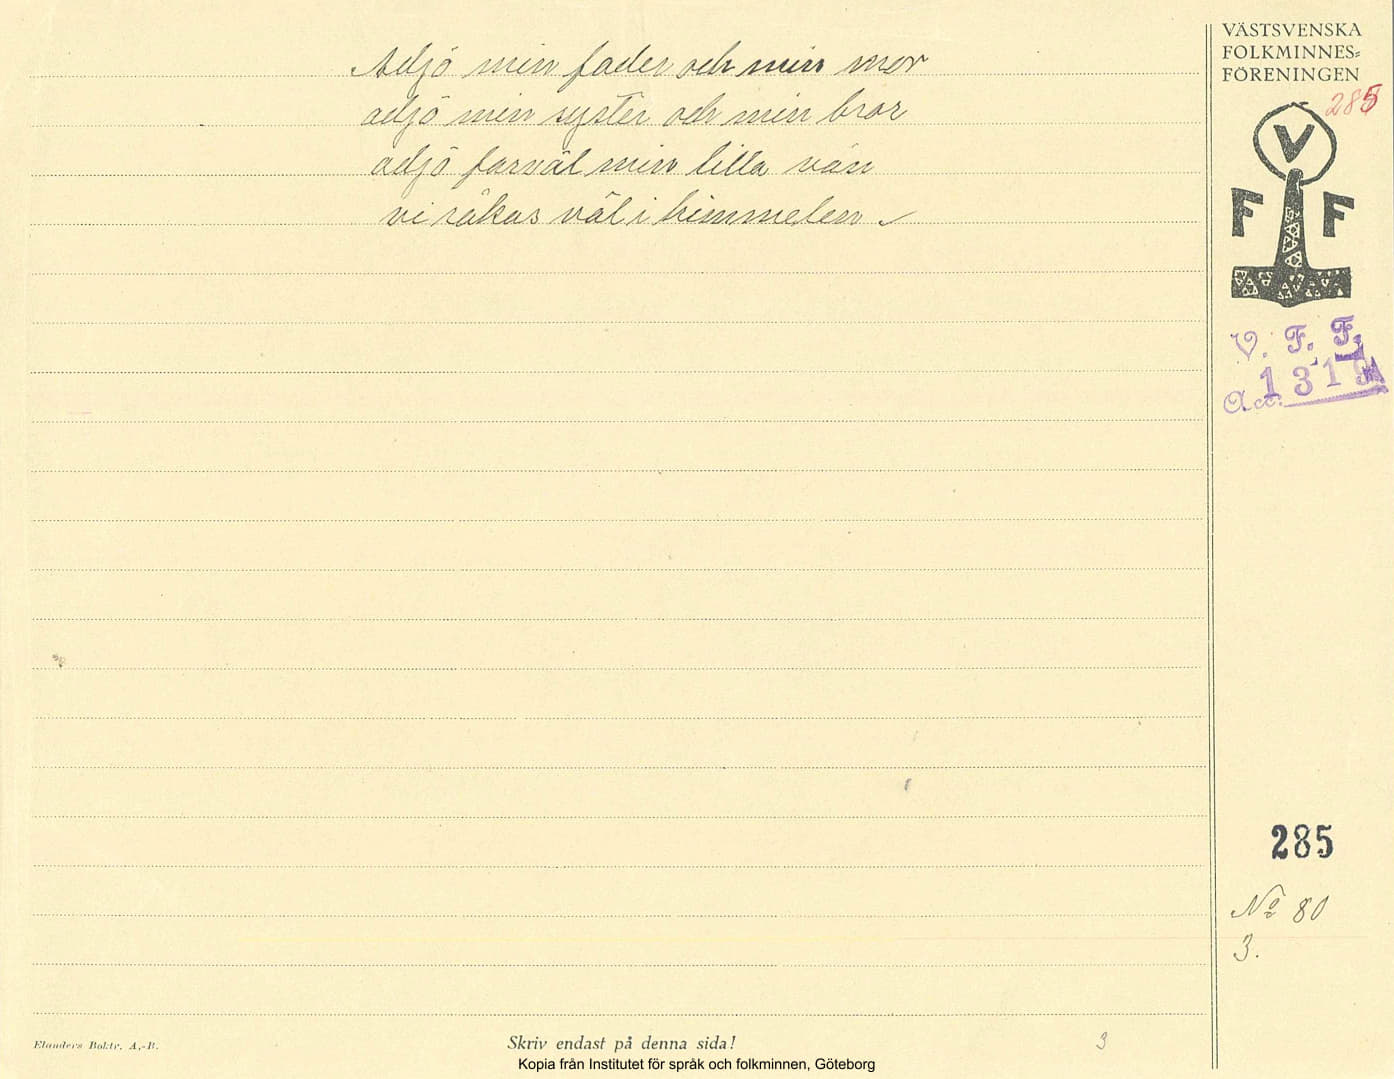 Adjö min fader och min mor
adjö min syster och min bror
adjö farväl min lilla vän
vi räkas väl i himmelen
VÄSTSVENSKA
FOLKMINNES=
FÖRENINGEN
285
V
F F
V. F. F.
Acc. 1319
285
No 80
3.
Elanders Boktr. A.-B.
Skriv endast på denna sida!
3
Kopia från Institutet för språk och folkminnen, Göteborg